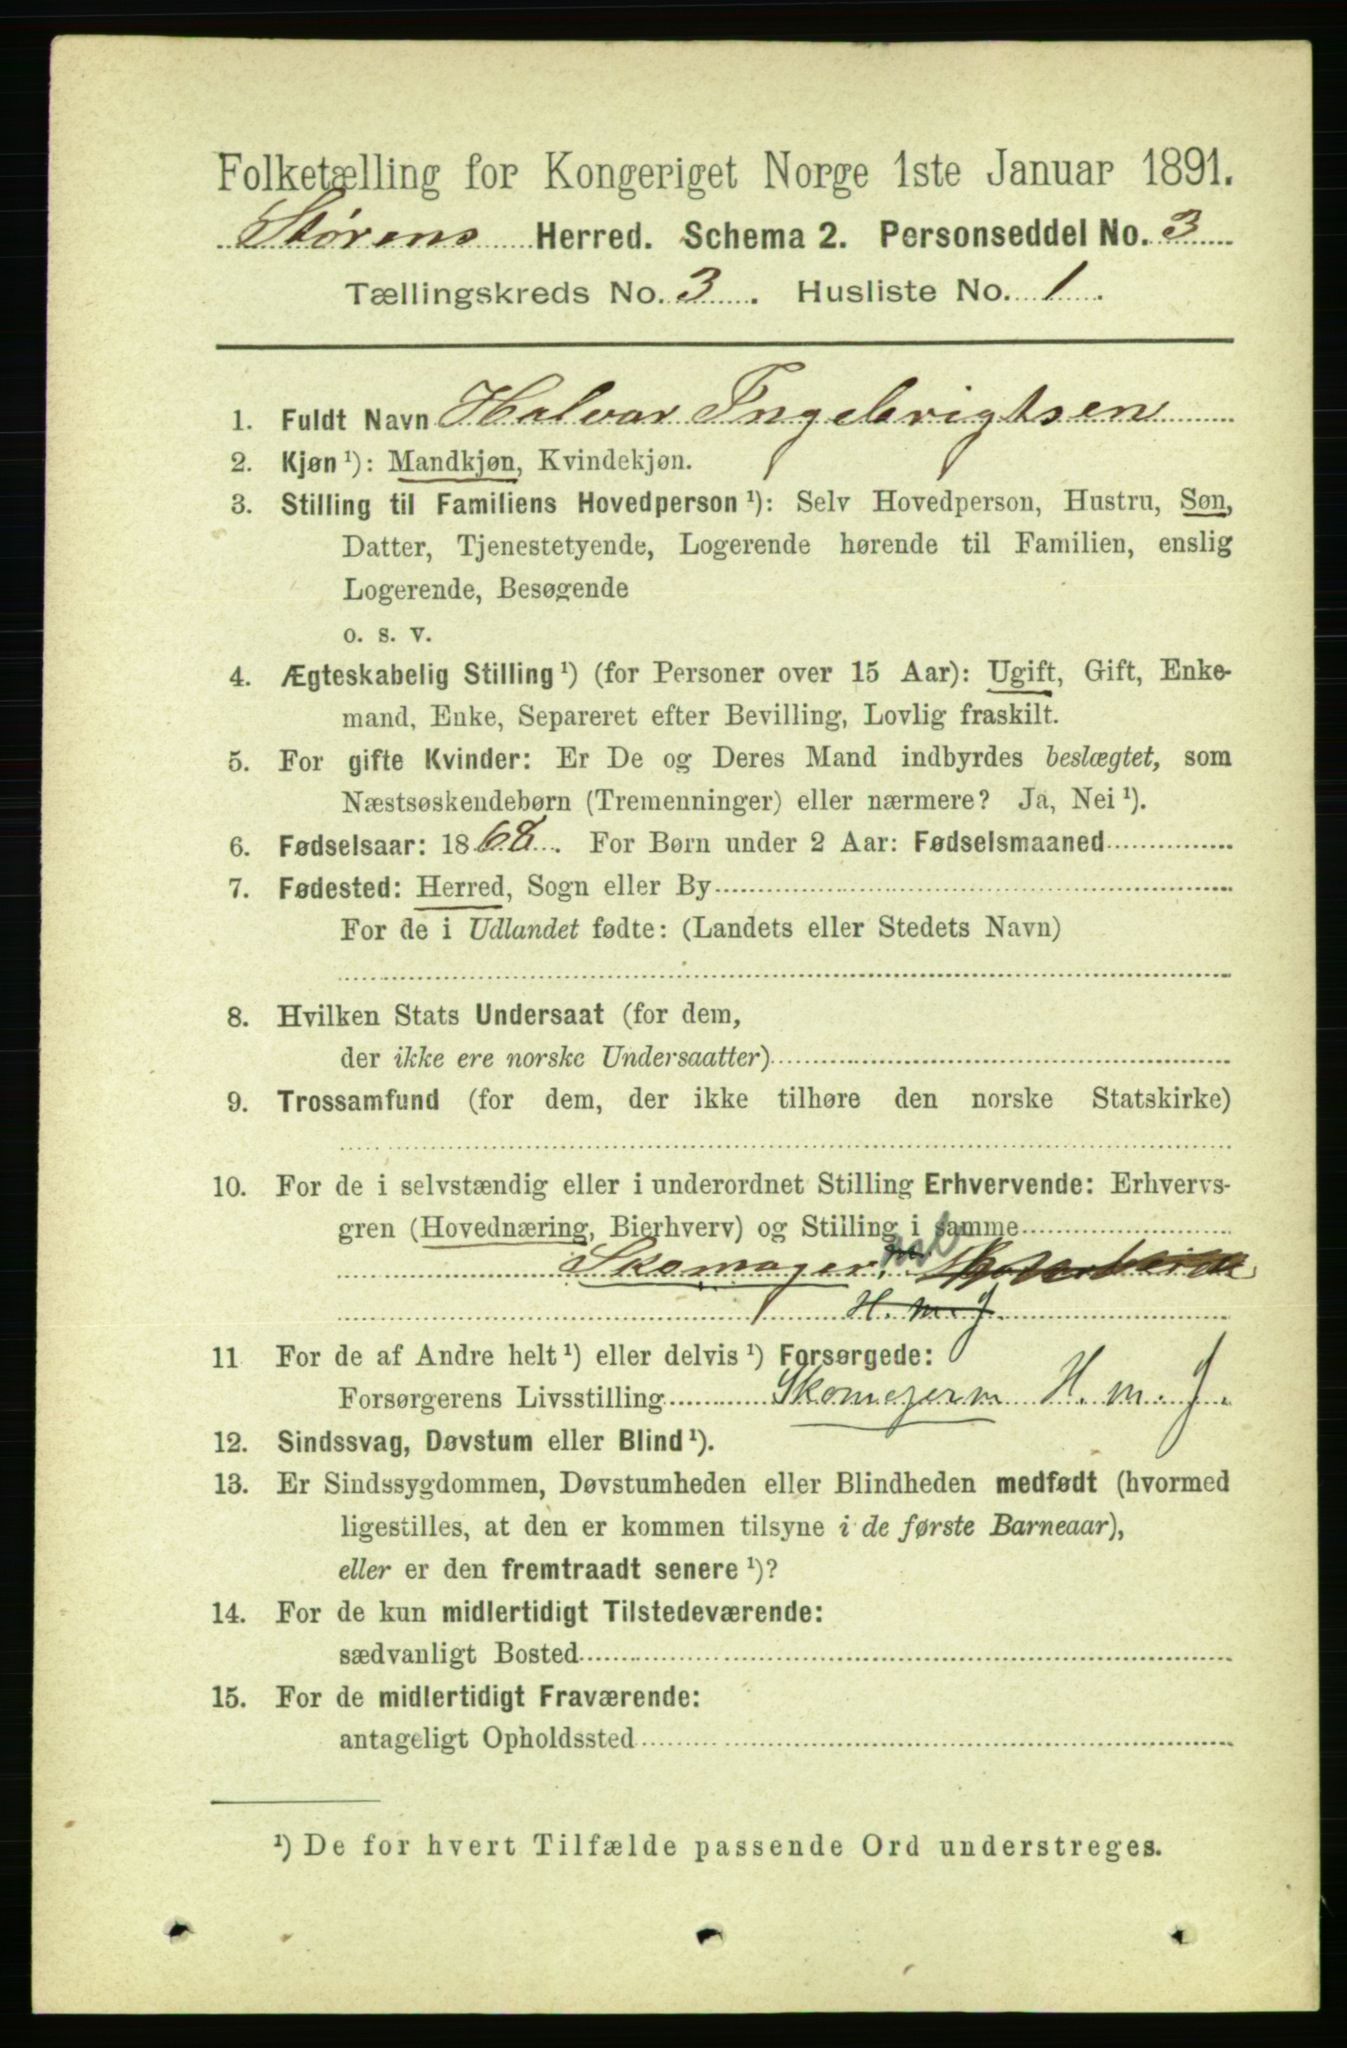 Folketælling for Kongeriget Norge 1ste Januar 1891.
Størens Herred. Schema 2. Personseddel No. 3
Tællingskreds No. 3. Husliste No. 1.
1. Fuldt Navn Halvar Ingebrigtsen
2. Kjøn ¹): Mandkjøn, Kvindekjøn.
3. Stilling til Familiens Hovedperson ¹): Selv Hovedperson, Hustru, Søn,
Datter, Tjenestetyende, Logerende hørende til Familien, enslig
Logerende, Besøgende
o. s. v.
4. Ægteskabelig Stilling ¹) (for Personer over 15 Aar): Ugift, Gift, Enke-
mand, Enke, Separeret efter Bevilling, Lovlig fraskilt.
5. For gifte Kvinder: Er De og Deres Mand indbyrdes beslægtet, som
Næstsøskendebørn (Tremenninger) eller nærmere? Ja, Nei ¹).
6. Fødselsaar: 1868. For Børn under 2 Aar: Fødselsmaaned
7. Fødested: Herred, Sogn eller By
For de i Udlandet fødte: (Landets eller Stedets Navn)
8. Hvilken Stats Undersaat (for dem,
der ikke ere norske Undersaatter)
9. Trossamfund (for dem, der ikke tilhøre den norske Statskirke)
10. For de i selvstændig eller i underordnet Stilling Erhvervende: Erhvervs-
gren (Hovednæring, Bierhverv) og Stilling i samme
Skomager
H. m. J.
11 For de af Andre helt ¹) eller delvis ¹) Forsørgede:
Forsørgerens Livsstilling Skomagerm H. m. J.
12. Sindssvag, Døvstum eller Blind ¹).
13. Er Sindssygdommen, Døvstumheden eller Blindheden medfødt (hvormed
ligestilles, at den er kommen tilsyne i de første Barneaar),
eller er den fremtraadt senere ¹)?
14. For de kun midlertidigt Tilstedeværende:
sædvanligt Bosted
15. For de midlertidigt Fraværende:
antageligt Opholdssted
¹) De for hvert Tilfælde passende Ord understreges.